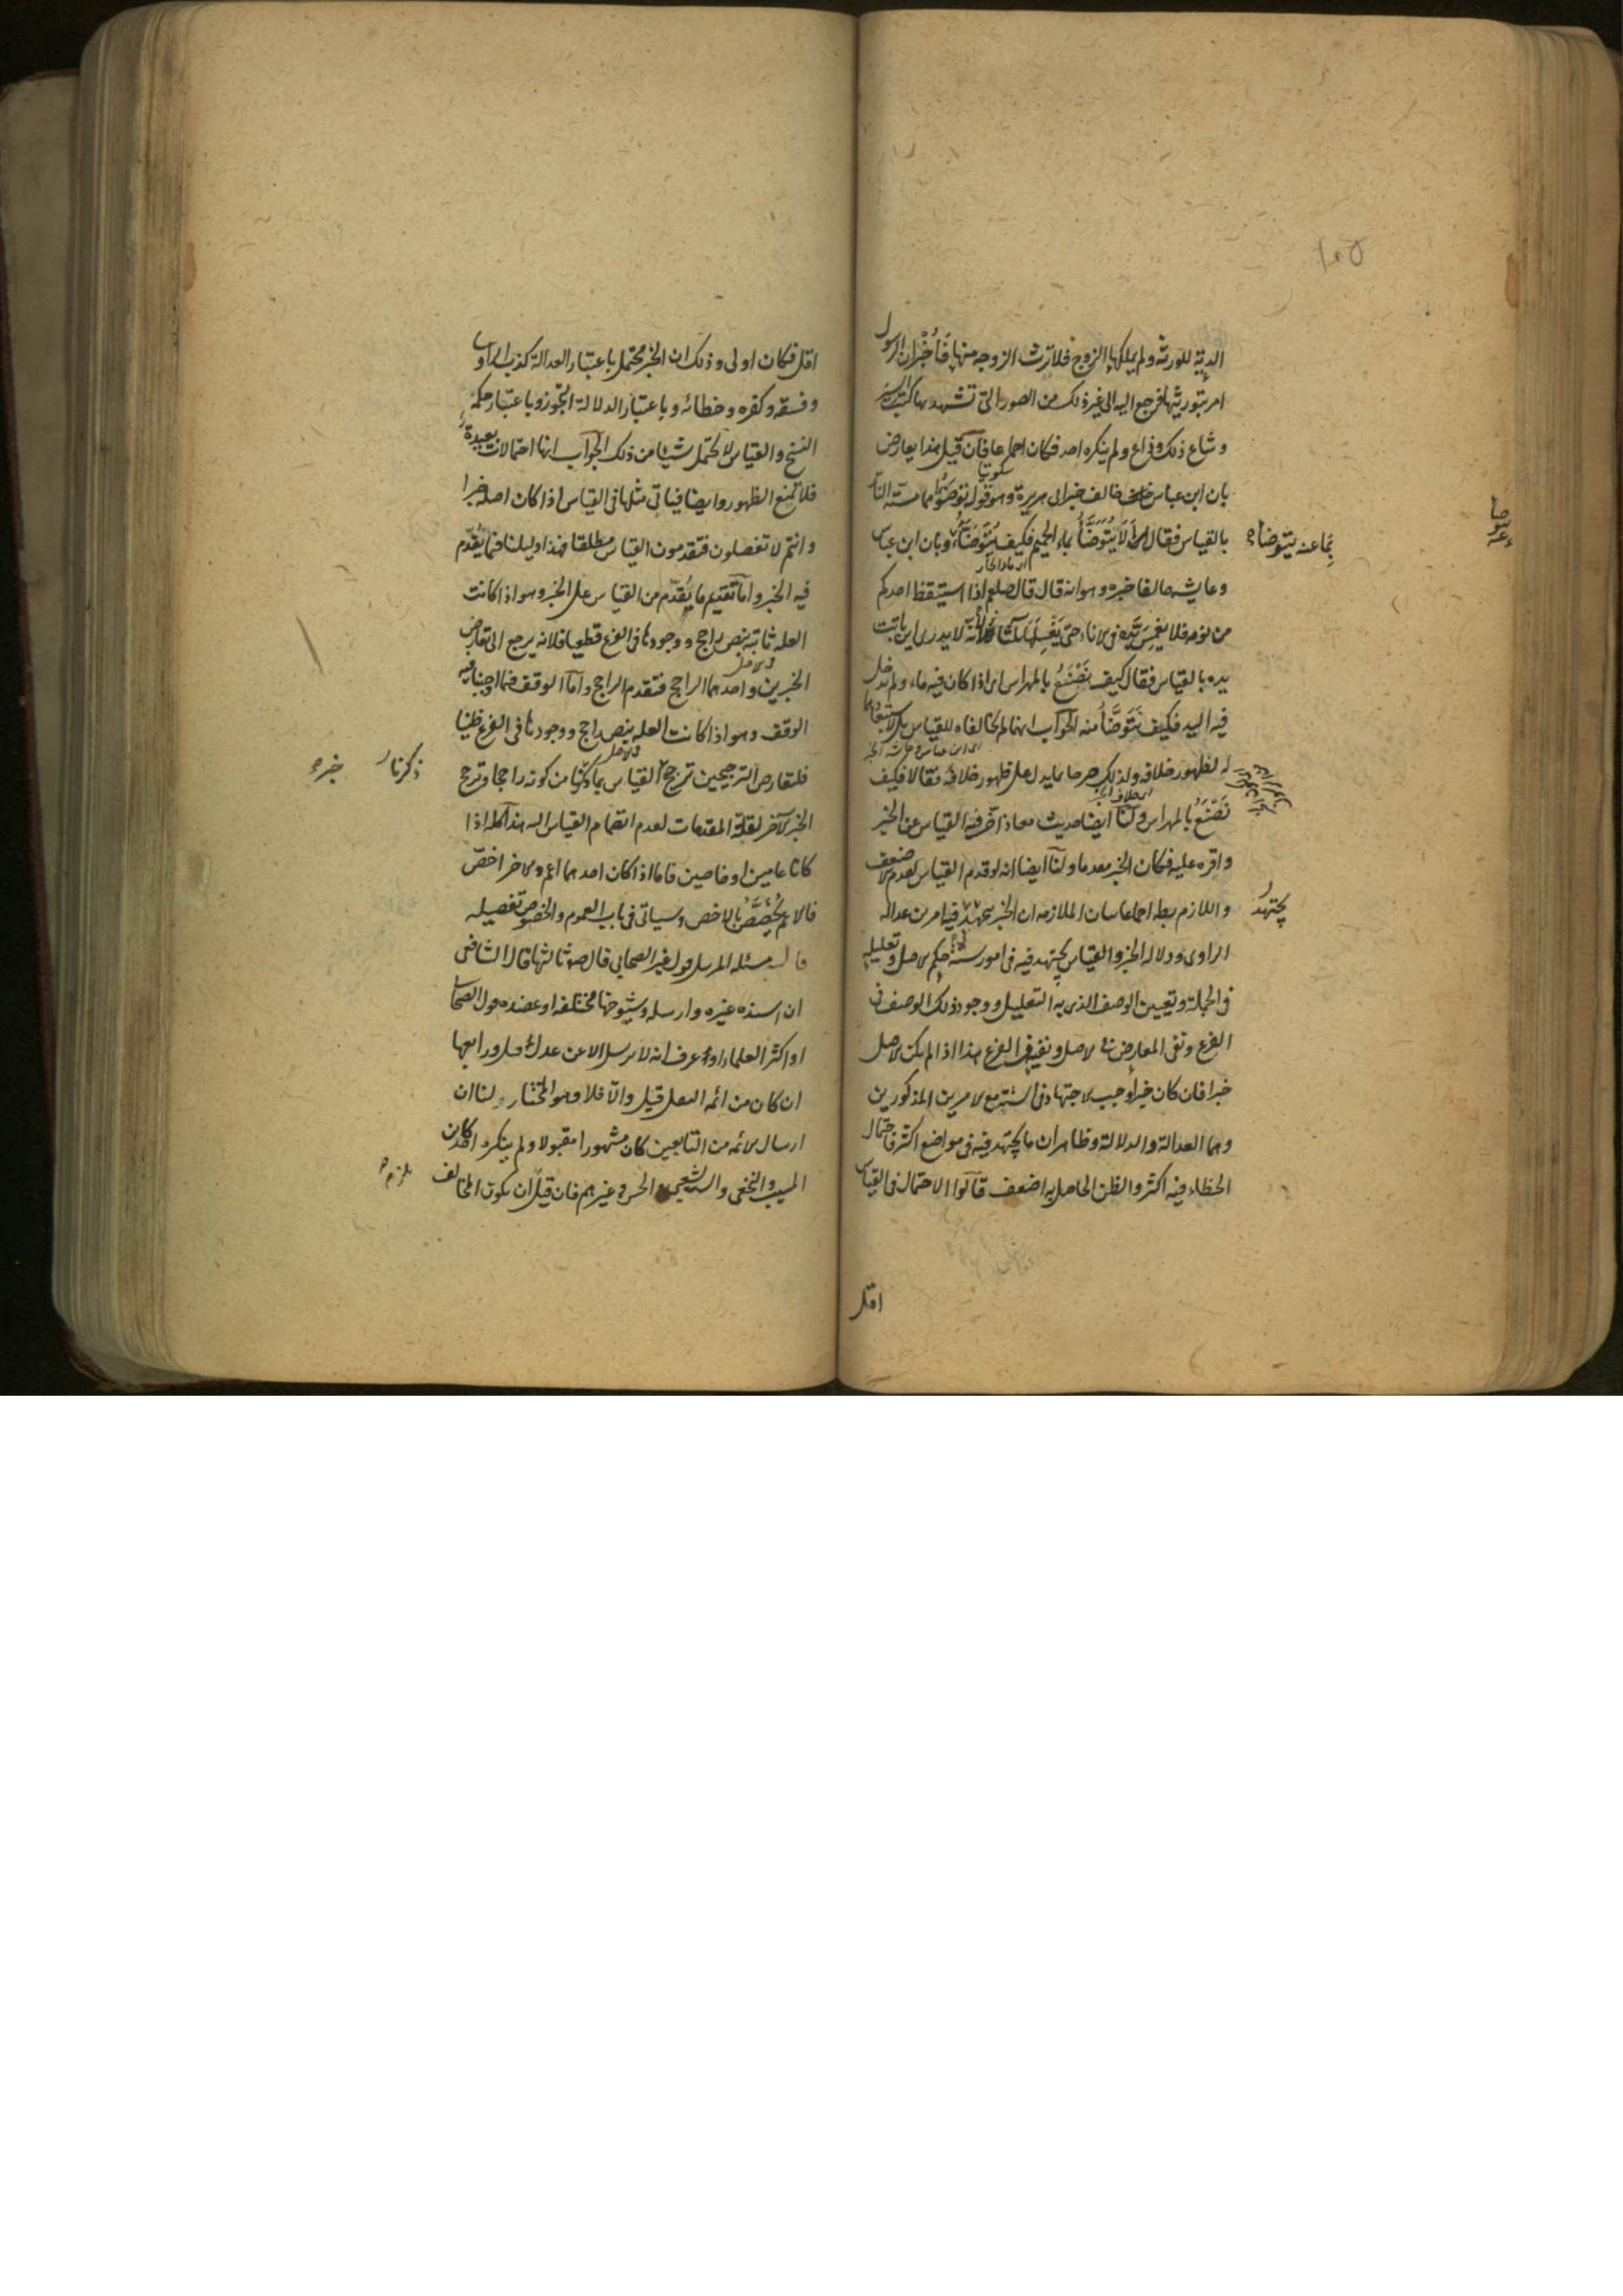 الدية للورثة ولم يملكها الزوج فلا ترث الزوجه منها فأخبر ان الرسول
امر بتوريثها فرجع اليه الى غير ذلك من الصور التى تشهد بها كتب السير
وشاع ذلك وذاع ولم ينكره احد فكان اجماعا فان قيل هذا يعارض
سكوتيا
بان ابن عباس خالف خبر ابى هريرة وهو قوله توضؤا مما مسته النار
بالقياس فقال ألا يتوضأ بماء الحميم فكيف يتوضأ وبان ابن عباس
بما عنه يتوضأ
وعايشه خالفا خبره وهو انه قال قال صلعم اذا استيقظ احدكم
من نومه فلا يغمس يده فى الاناء حتى يغسلها ثلاثا فانه لا يدرى اين باتت
يده بالقياس فقال كيف نصنع بالمهراس اى اذا كان فيه ماء ولم تدخل
فيه اليد فكيف نتوضأ منه الجواب انهما لم يخالفاه للقياس بل لاستبعادهما
له لظهور خلافه ولذلك صرحا بما يدل على ظهور خلافه فقالا فكيف
نصنع بالمهراس ولنا ايضا حديث معاذ اخر فيه القياس عن الخبر
واقره عليه فكان الخبر مقدما ولنا ايضا انه لو قدم القياس لقدم الاضعف
واللازم بط اجماعا بيان الملازمه ان الخبر يجتهد فيه فى امرين عداله
يجتهد
الراوى ودلاله الخبر والقياس يجتهد فيه فى امور ستة حكم الاصل وتعليله
فى الجملة وتعيين الوصف الذى به التعليل ووجود ذلك الوصف فى
الفرع ونفى المعارض فى الاصل ونفيه فى الفرع هذا اذا لم يكن الاصل
خبرا فان كان خبرا وجب الاجتهاد فى الستة مع الامرين المذكورين
وهما العدالة والدلالة وظاهر ان ما يجتهد فيه فى مواضع اكثر فاحتمال
الخطاء فيه اكثر والظن الحاصل به اضعف قالوا الاحتمال فى القياس
اقل
اقل فكان اولى وذلك ان الخبر يحتمل باعتبار العدالة كذب الراوى
وفسقه وكفره وخطائه وباعتبار الدلالة التجوز وباعتبار حكمه
النسخ والقياس لا يحتمل شيئا من ذلك الجواب انها احتمالات بعيدة
فلا تمنع الظهور وايضا فياتى مثلها فى القياس اذا كان اصله خبرا
وانتم لا تفصلون فتقدمون القياس مطلقا هذا دليلنا فيما يقدم
فيه الخبر واما تقديم ما يقدم من القياس على الخبر وهو اذا كانت
العله ثابتة بنص راجح ووجودها فى الفرع قطعيا فلانه يرجع الى تعارض
الخبرين واحدهما الراجح فتقدم الراجح واما الوقف فيما اوجبنا فيه
الوقف وهو اذا كانت العله بنص راجح ووجودها فى الفرع ظنيا
فلتعارض الترجيحين ترجح القياس بما ذكرنا من كونه راجحا وترجح
ذكرنا خبره
الخبر الآخر لقلة المقدمات لعدم انضمام القياس اليه هذا كله اذا
كانا عامين او خاصين فاما اذا كان احدهما اعم والاخر اخص
فالاعم يخصص بالاخص وسياتى فى باب العموم والخصوص تفصيله
قال مسئله المرسل قول غير الصحابى قال صم ثالثها قال الشافعى
ان اسنده غيره او ارسله وشيوخهما مختلفه او عضده قول الصحابى
او اكثر العلماء او عرف انه لا يرسل الا عن عدل قبل ورابعها
ان كان من ائمه النقل قبل والا فلا وهو المختار لنا ان
ارسال الائمه من التابعين كان مشهورا مقبولا ولم ينكره احد كابن
المسيب والنخعى والشعبى والحسن وغيرهم فان قيل ان يكون المخالف
يلزم